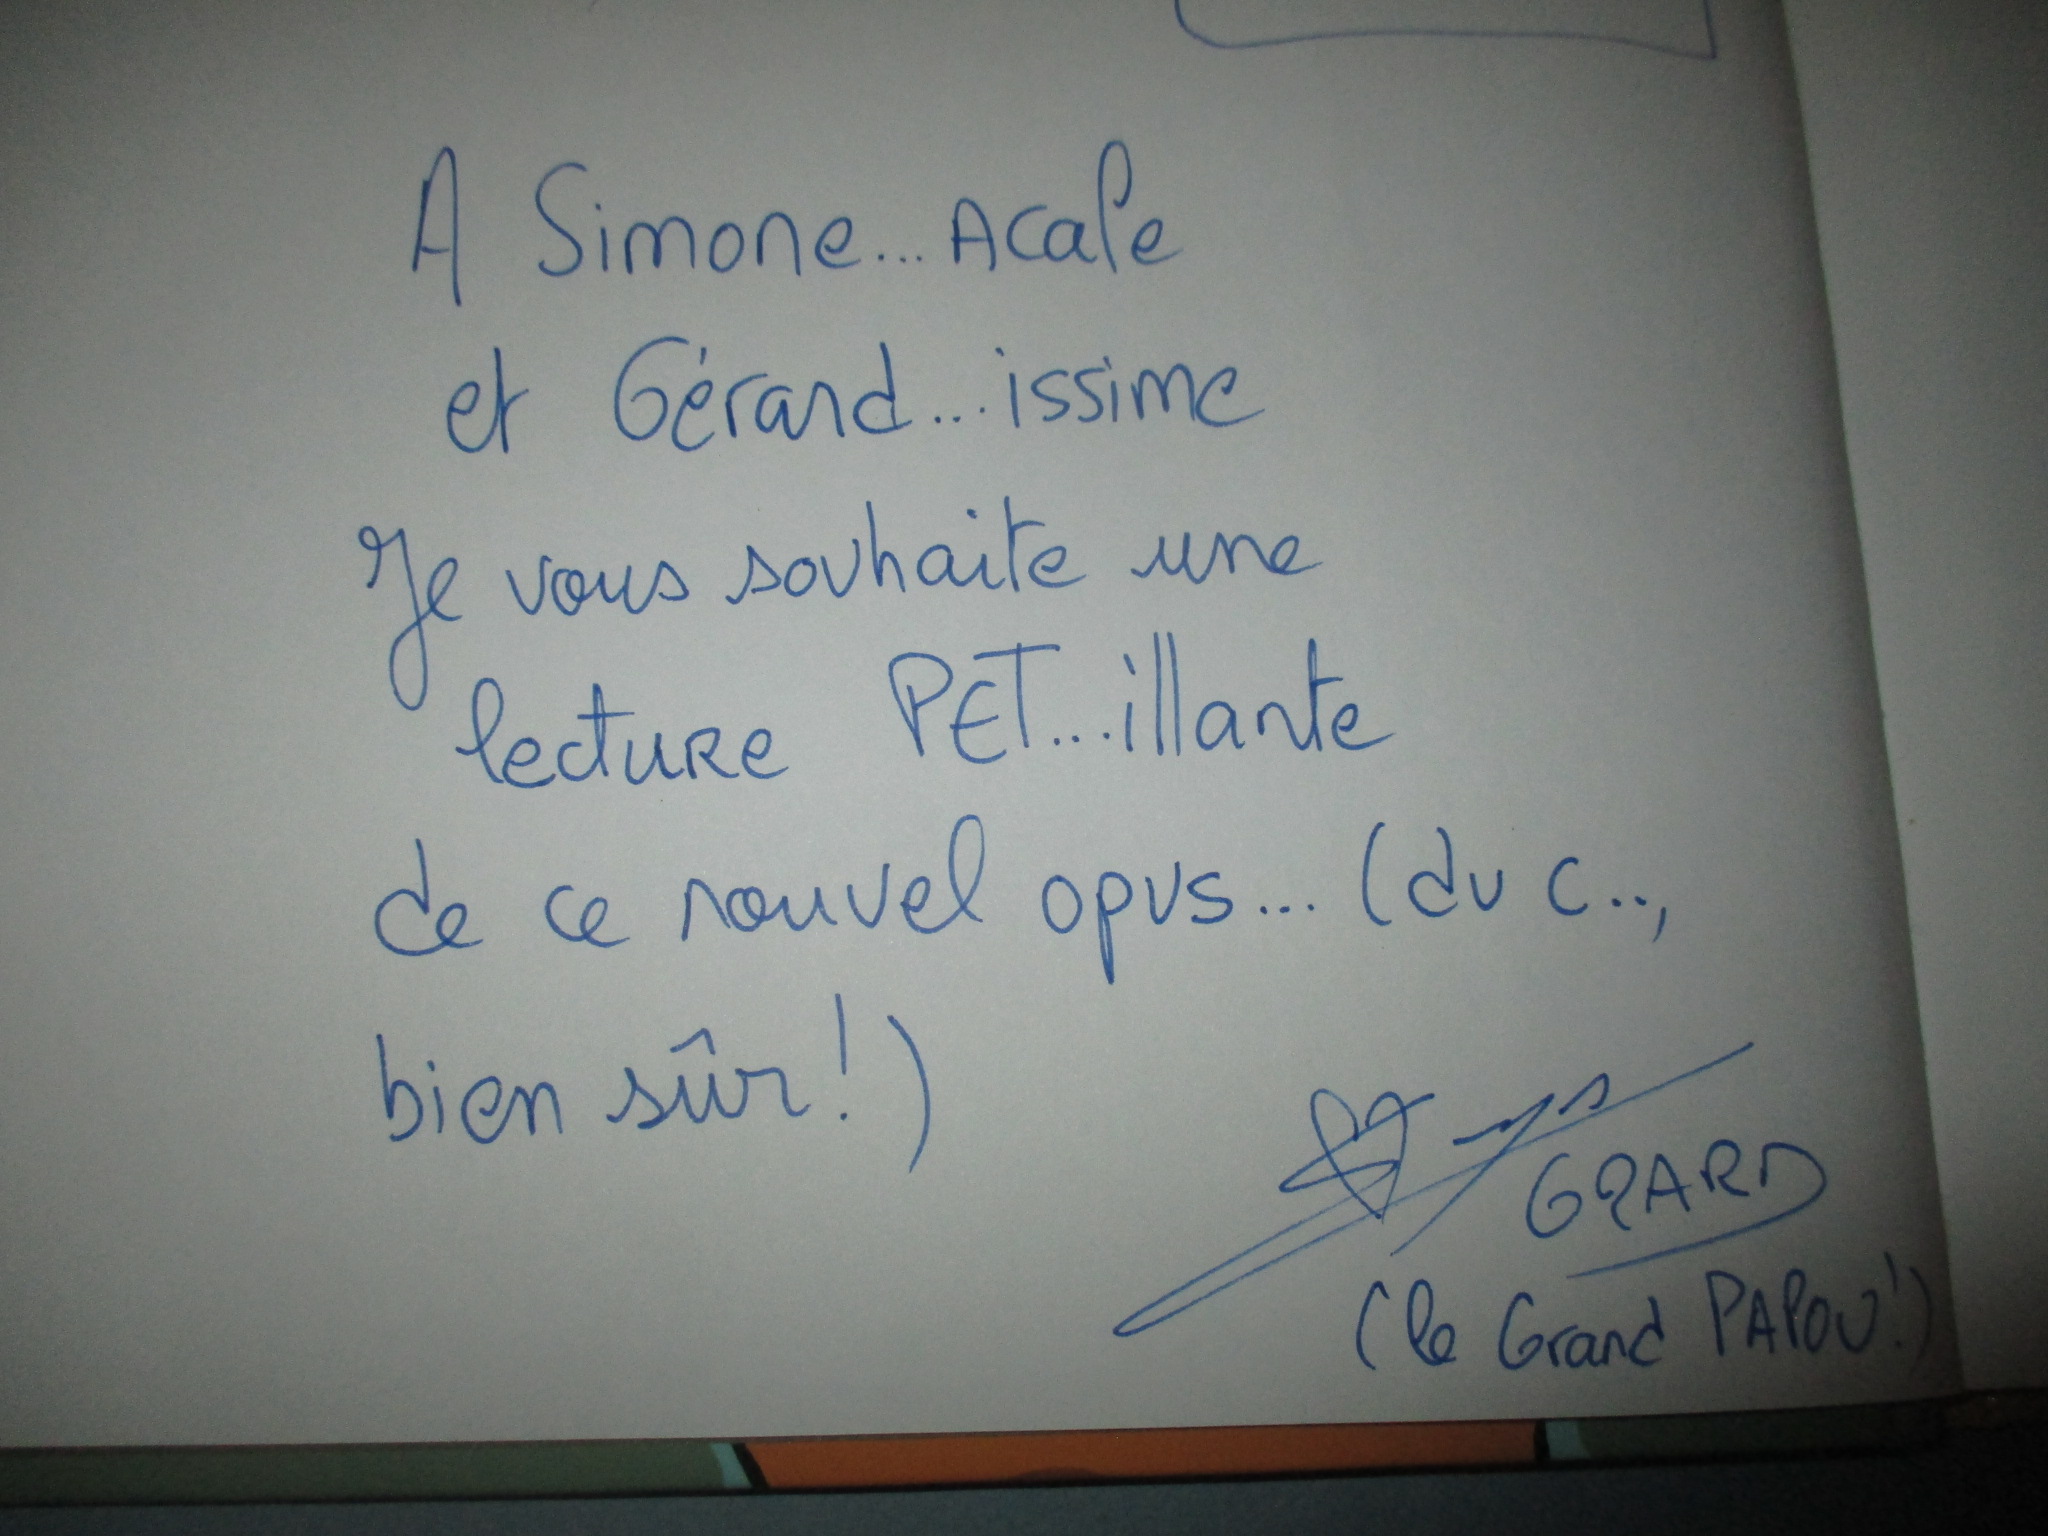 A Simone... Acale
et Gérard... issime
Je vous souhaite une
lecture PET...illante
de ce nouvel opus... (du c..,
bien sûr!)
GRARD
(le Grand PAPOU!)